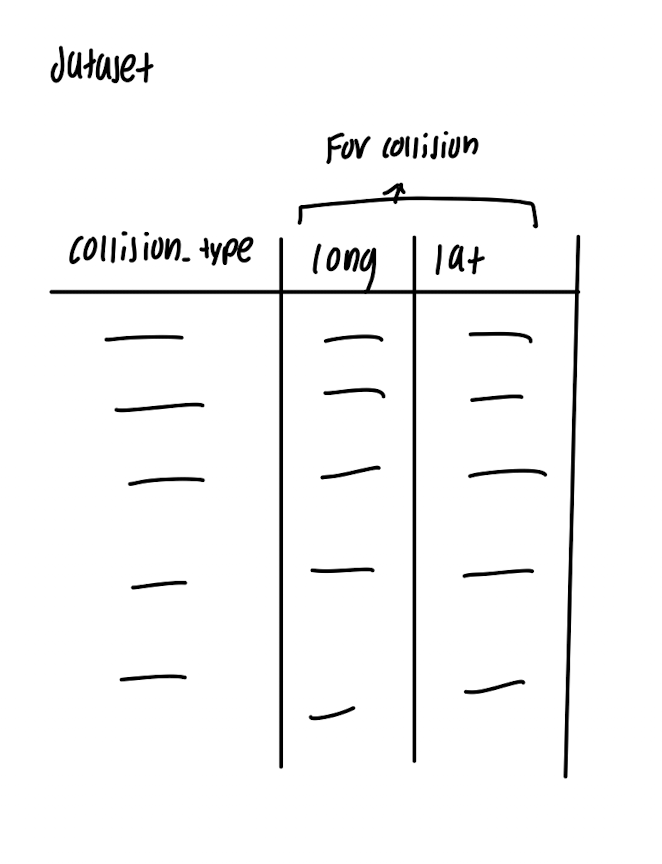 dataset
For collision
collision_type long lat